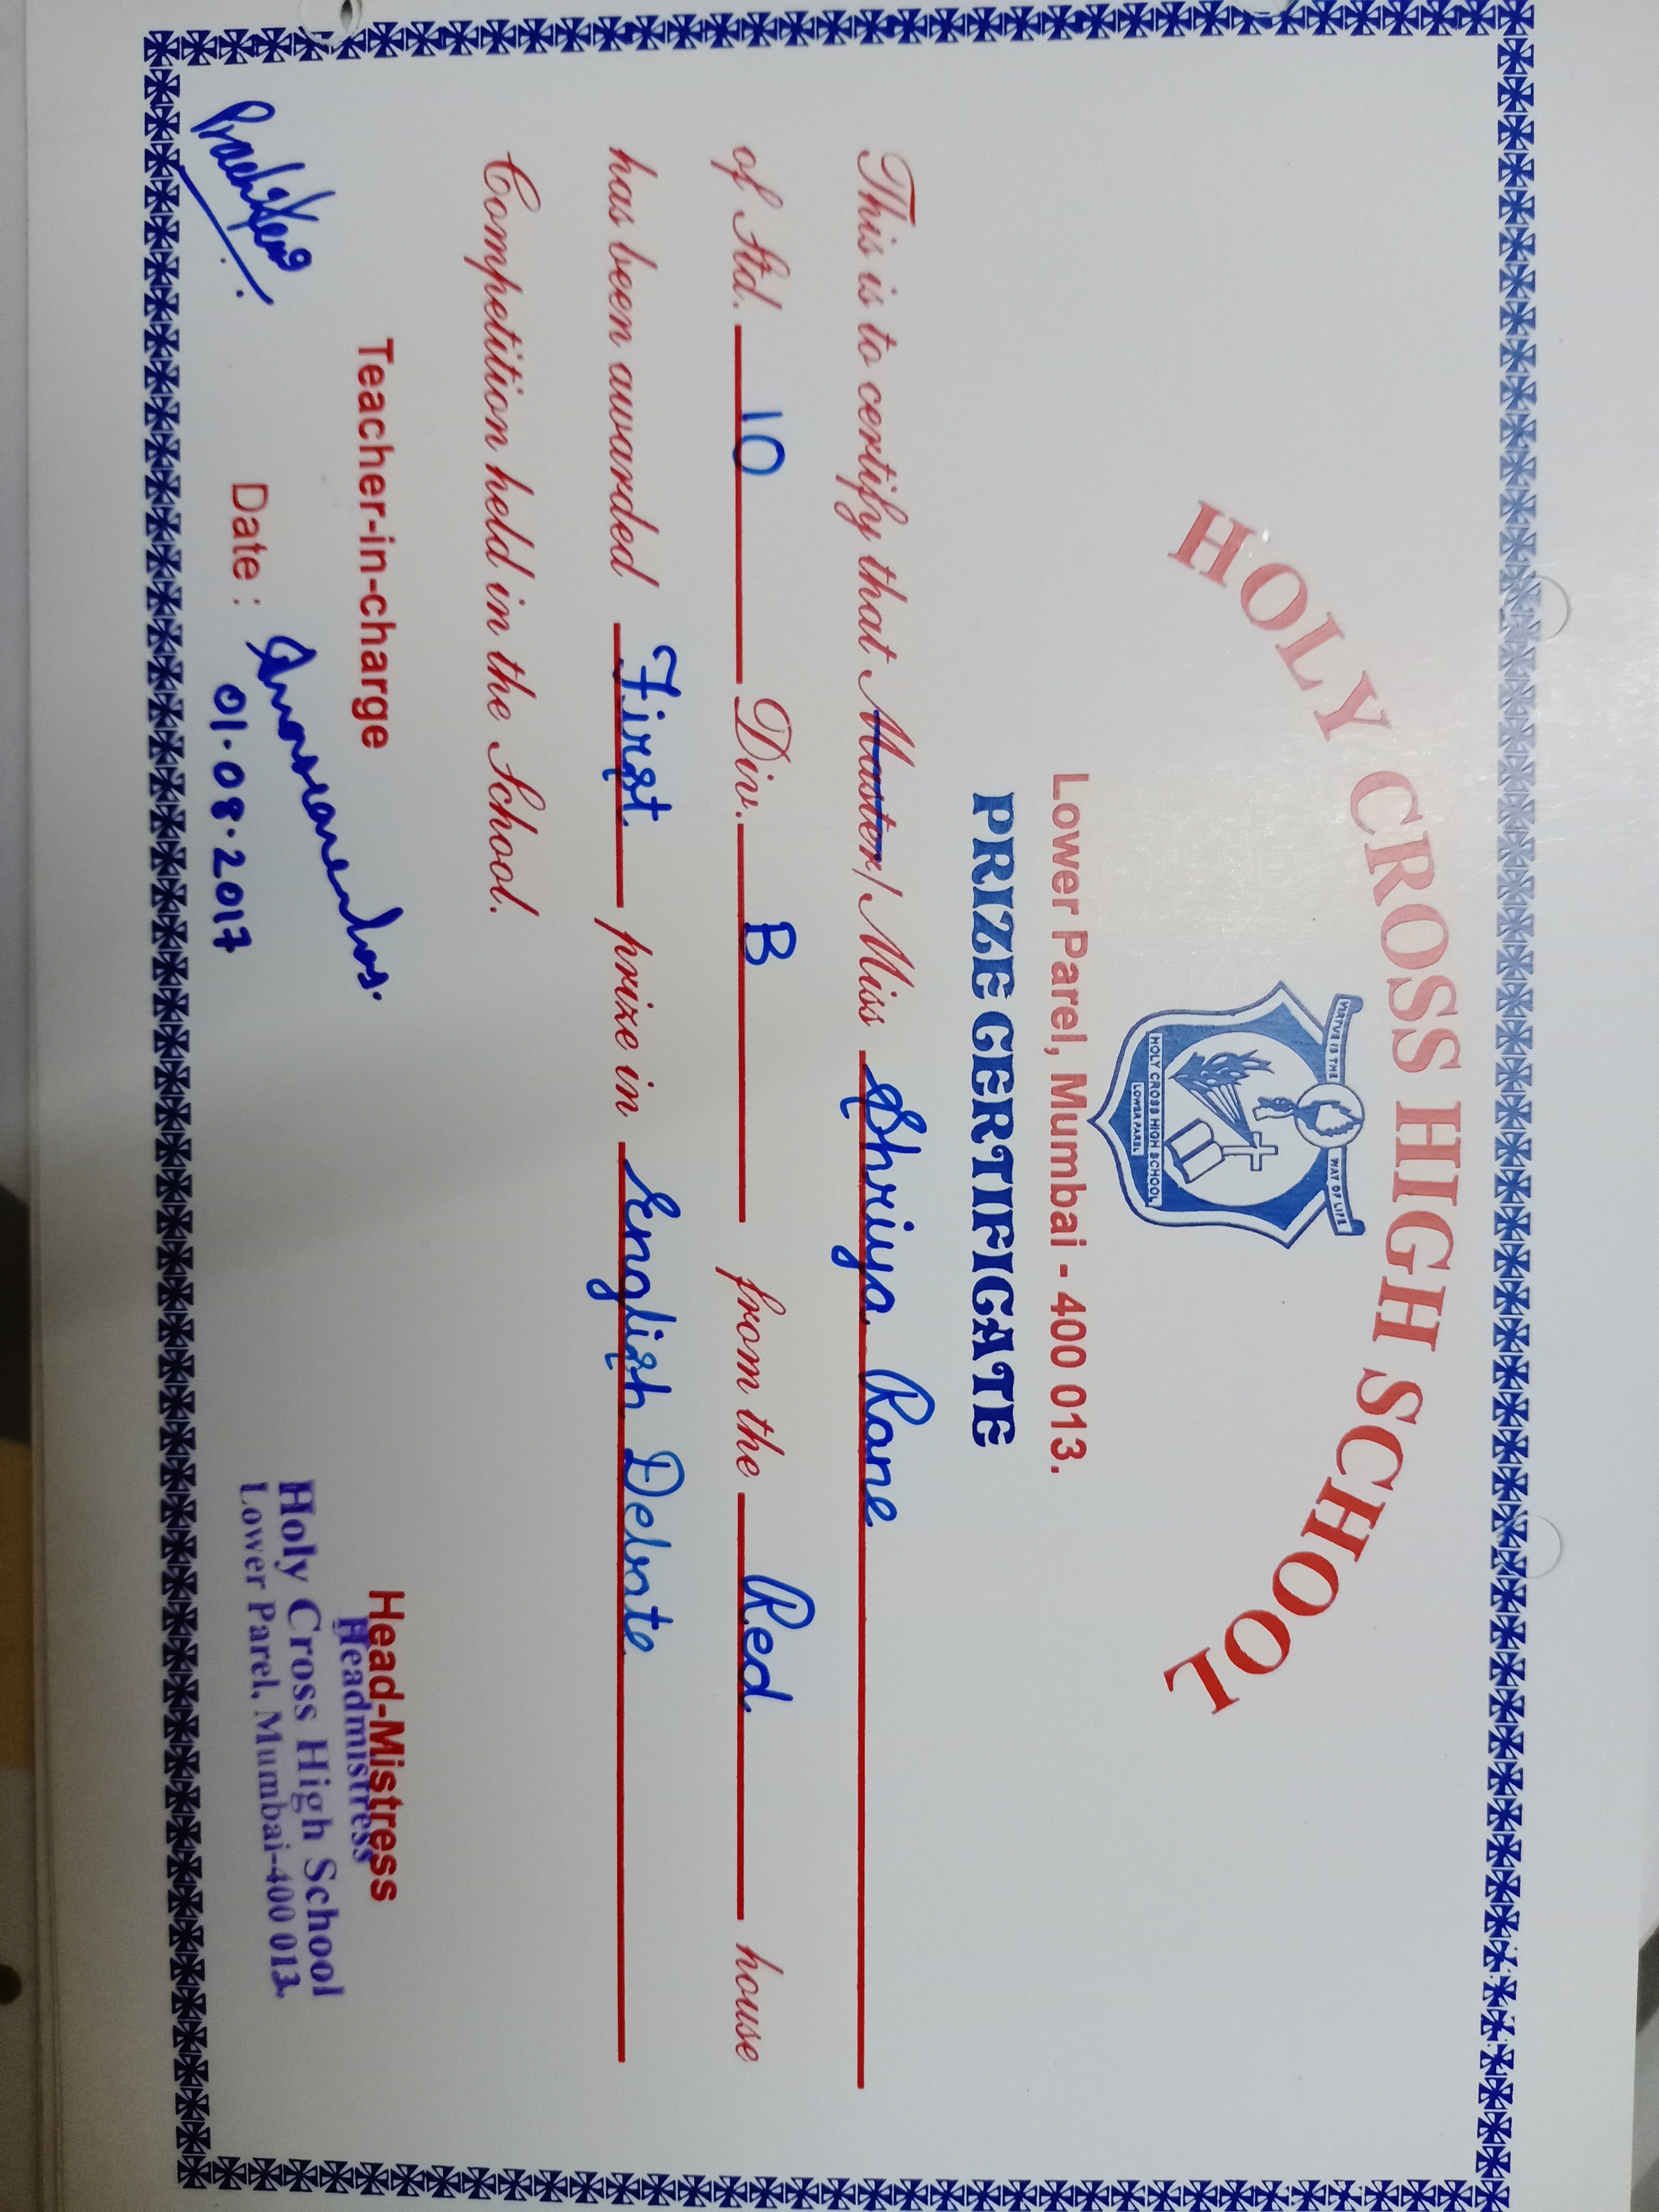 HOLY CROSS HIGH SCHOOL
VIRTUE IS THE WAY OF LIFE
HOLY CROSS HIGH SCHOOL
LOWER PAREL
Lower Parel, Mumbai - 400 013.
PRIZE CERTIFICATE
This is to certify that Master/Miss Shriya Rane
of Std. 10 Div. B from the Red house
has been awarded First prize in English Debate
Competition held in the School.
Teacher-in-charge Head-Mistress
Headmistress
Holy Cross High School
Lower Parel, Mumbai-400 013.
Date : 01.08.2017